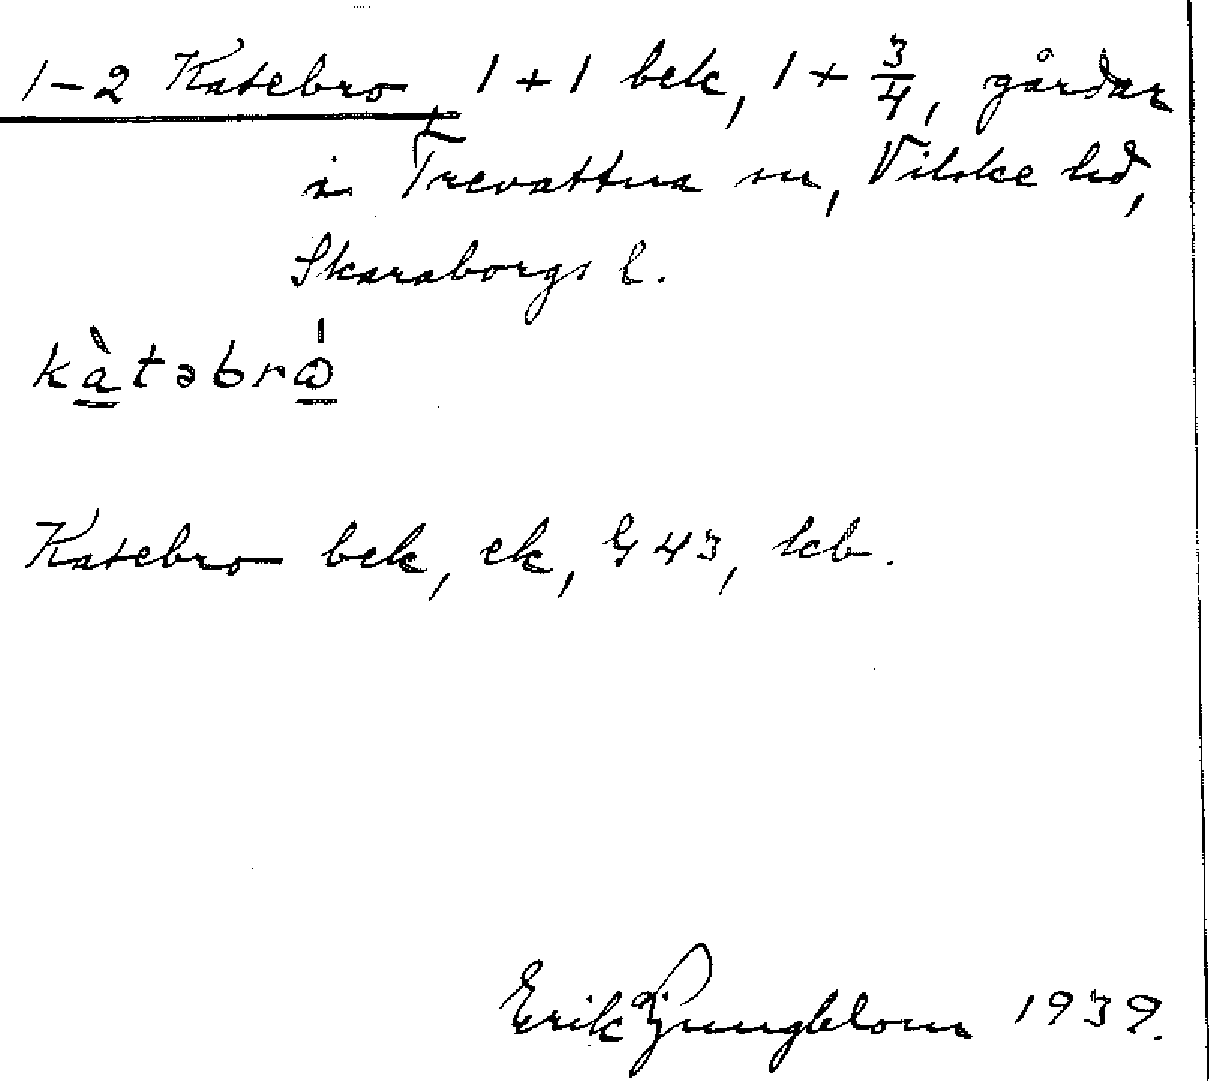 1-2 Katebro, 1+1 bek, 1+3/4, gårdar
i Trevattna sn, Vilske hd,
Skaraborgs l.
kàtəbrὼ
Katebro bek, ek, G 43, kb.
Erik Ljungblom 1939.